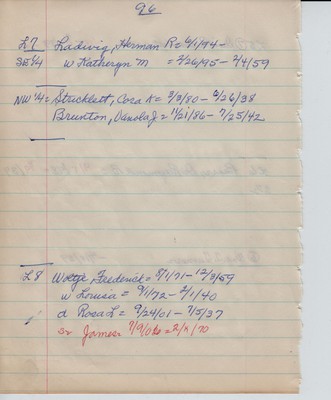 96
L7 Ladwig, Herman R = 6/1/94 -
SE 1/4 w Katheryn M = 2/26/95 - 2/4/59
NW 1/4 = Strucklett, Cora K = 3/3/80 - 2/26/38
Brunton, Danola J = 11/21/86 - 7/25/42
L8 Woltje Frederick = 8/1/71 - 12/3/59
w Louisa = 9/1/72 - 2/1/40
d Rosa L = 9/24/01 - 7/5/37
Sr James = 7/9/06 = 2/11/70